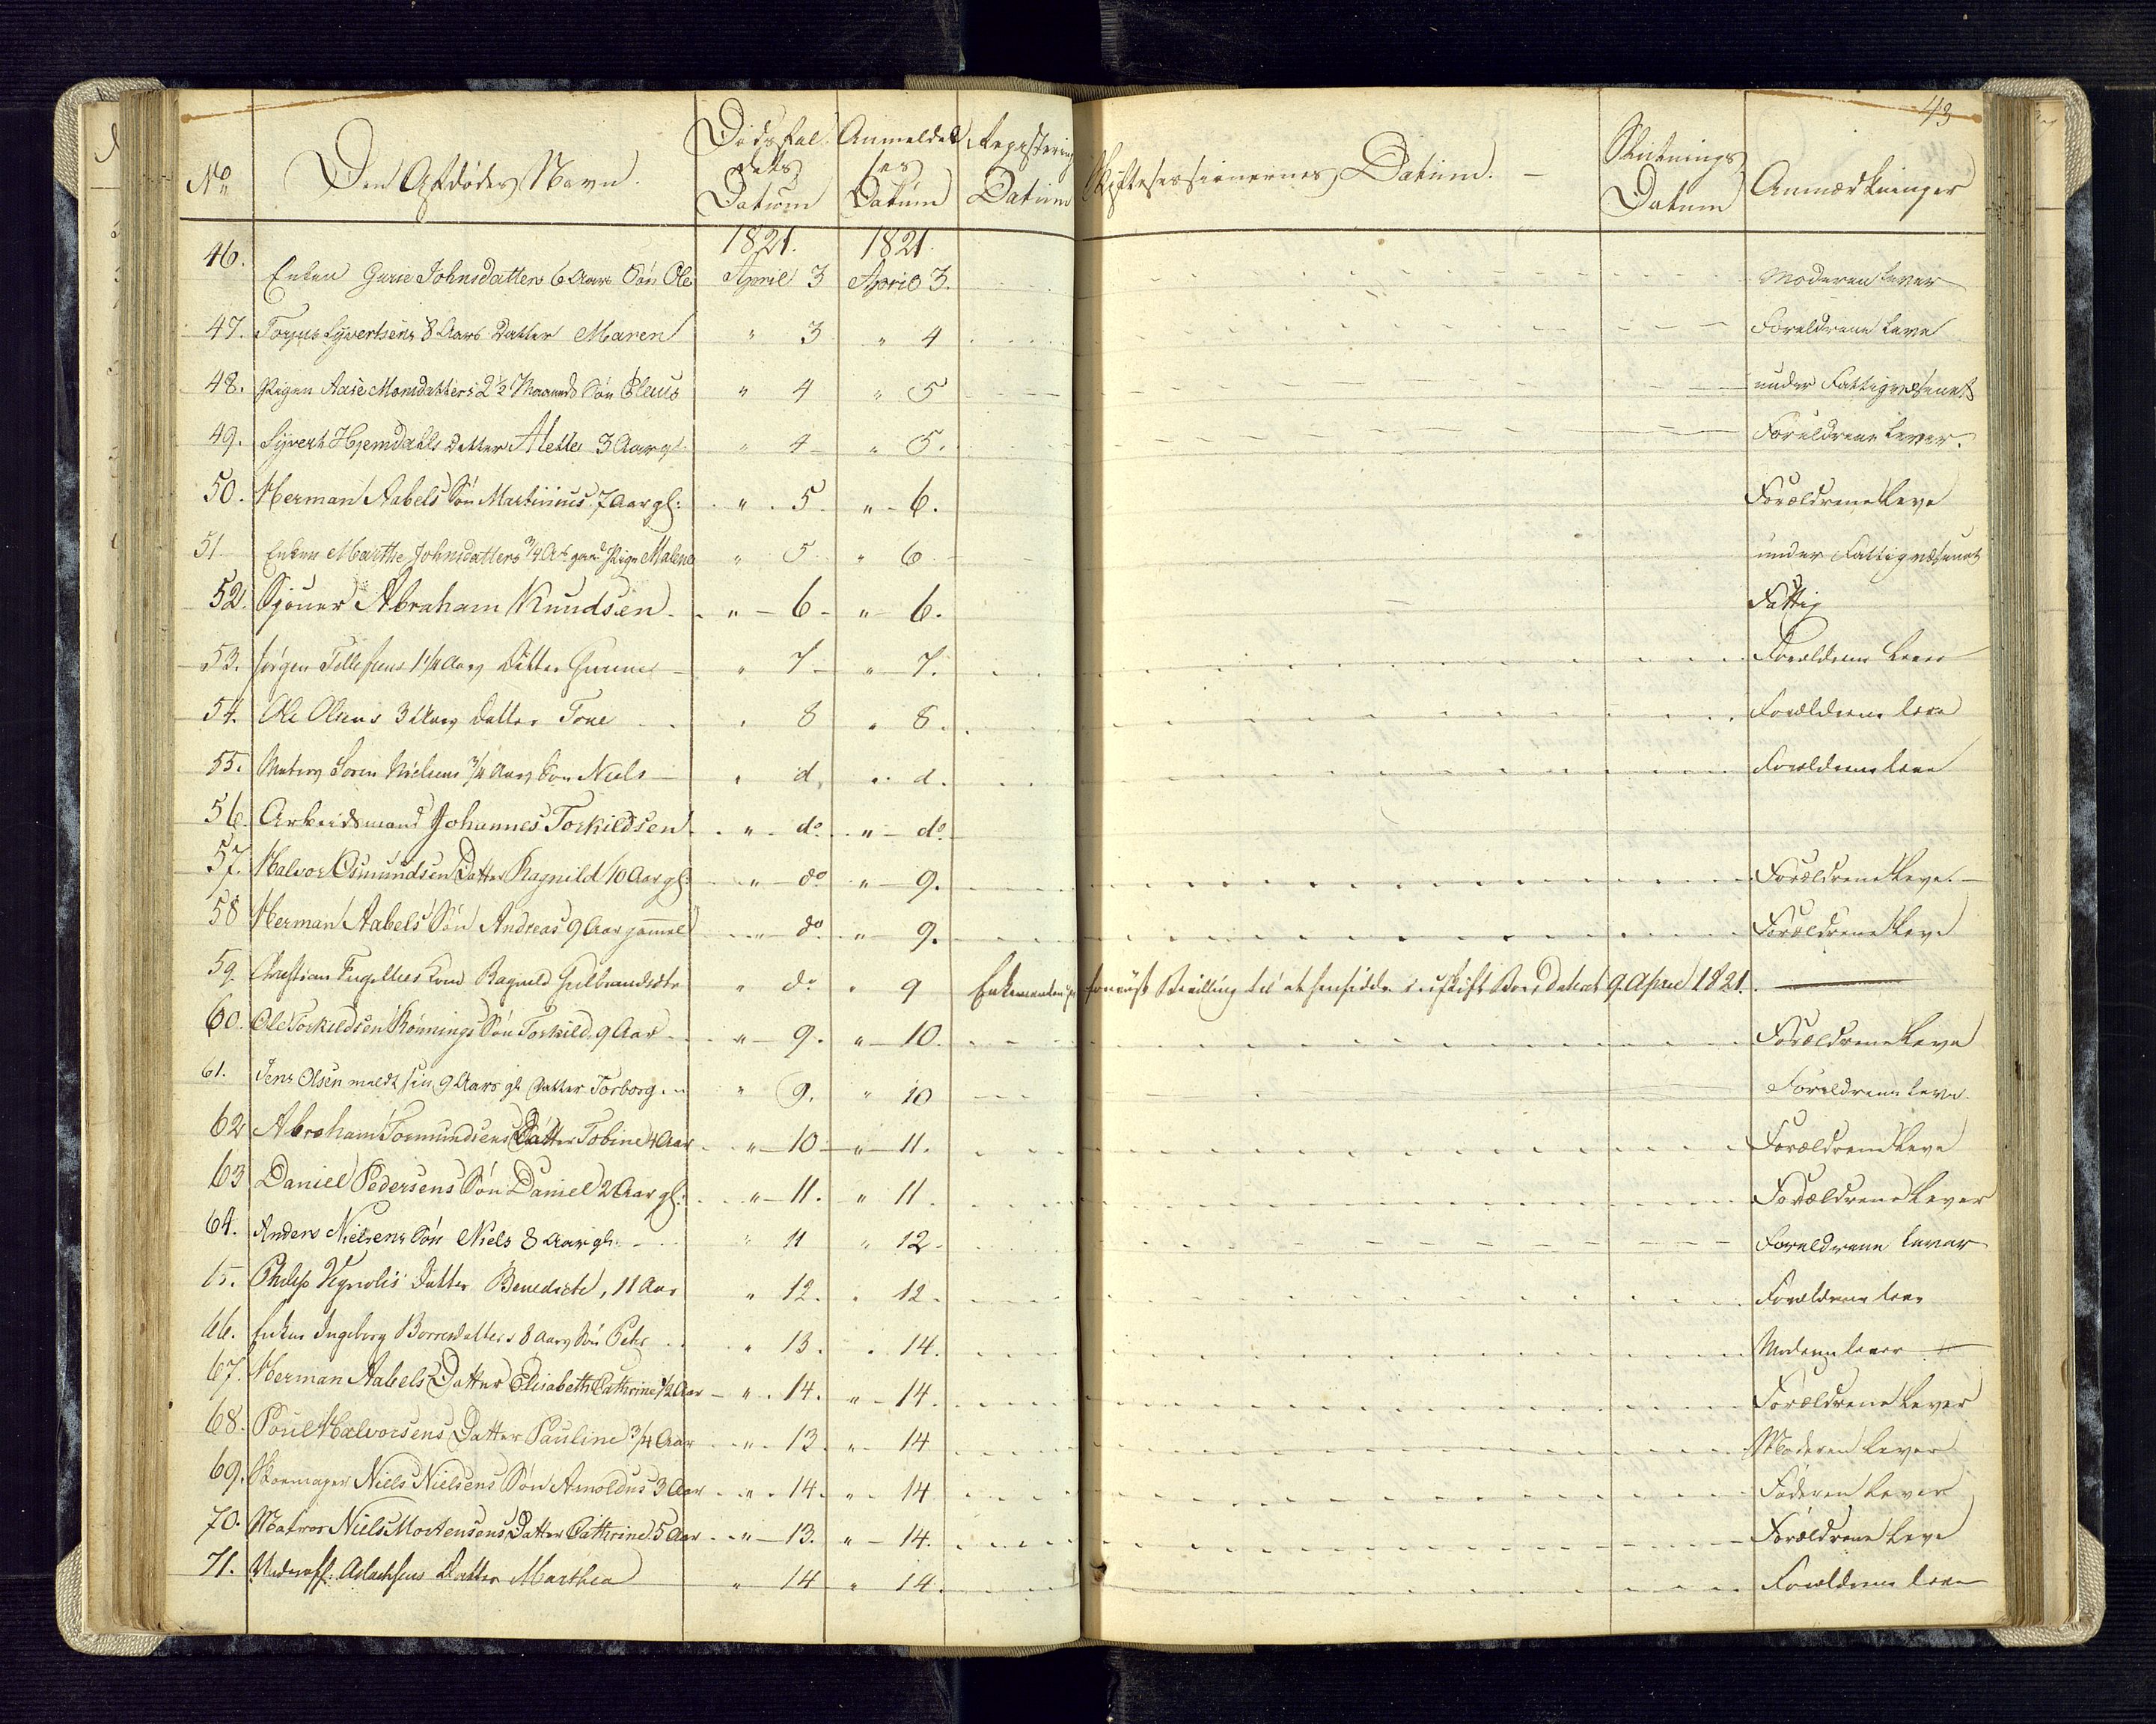 43
No Den Afdødes Navn. Dødsfal- Anmeldel- Registerings Skiftesessionernes Datum. Slutnings Anmærkninger
dets ses
Datum Datum Datum Datum
1821. 1821.
46. Enken Gurie Johnsdatters 6 Aars Søn Ole April 3 April 3. Moderen lever
47. Sÿvertsens 8 Aars Datter Maren " 3 " 4 Foreldrene leve
48. Pigen Aase Monsdatters 2 1/2 Maaneds Søn " 4 " 5 under Fattigvæsenet
49. Sÿvert Hjemdahls Datter Mette 3 Aar gl. " 4 " 5. Foreldrene lever.
50. Herman Aabels Søn Martinius 7 Aar gl: " 5 " 6. Forældrene leve
51 Enken Marthe Johnsdatters 3/4 Pige Malene " 5 " 6 under Fattigvæsenet
52. Abraham Knudsen " 6 " 6. Fattig
53. Jørgen Tellefsens 1 1/4 Aars Datter Gunne " 7 " 7. Forældrene leve
54. Ole Olsens 3 Aars Datter Tone " 8 " 8. Forældrene leve
55. Matros Søren Nielsens 3/4 Aars Søn Niels " d. " d. Forældrene leve
56. Arbeidsmand Johannes Torkildsen " do. " do.
57. Halvor Osmundsen Datter Ragnild 10 Aar gl: " do " 9. Forældrene leve.
58 Herman Aabels Søn Andreas 9 Aar gammel " do. " 9. Forældrene leve
59. Christian Kone Ragnild Gulbrandsdtr " do " 9 Enkemanden Bevilling til at hensidde i uskift Boe, dateret 9 April 1821.
60. Ole Torkildsen Rønnings Søn Torkild 9 Aar " 9. " 10. Forældrene leve
61. Jens Olsen meldt sin 9 Aars gl. Datter Torborg. " 9. " 10 Foreldrene leve.
62 Abraham Tormundsens Datter Tobine 4 Aar " 10 " 11. Forældrene leve
63 Daniel Pedersens Søn Daniel 2 Aar gl: " 11. " 11. Forældrene lever
64. Anders Nielsens Søn Niels 8 Aar gl. " 11 " 12. Foreldrene lever
65. Philip Datter Benedicte, 11 Aar " 12. " 12. Forældrene leve
66. Enken Ingeborg Børresdatters 8 Aars Søn Peter " 13. " 14. Moderen lever
67. Herman Aabels Datter Elisabeth Cathrine 1/2 Aar " 14. " 14. Forældrene lever
68. Poul Halvorsens Datter Pauline 3/4 Aar " 13. " 14 Moderen lever
69. Skoemager Niels Nielsens Søn Arnoldus 3 Aar " 14. " 14 Faderen lever
70. Matros Niels Mortensens Datter Cathrine 5 Aar " 13. " 14. Forældrene leve
71. Underoff. Aslachsens Datter Marthea " 14 " 14. Forældrene leve